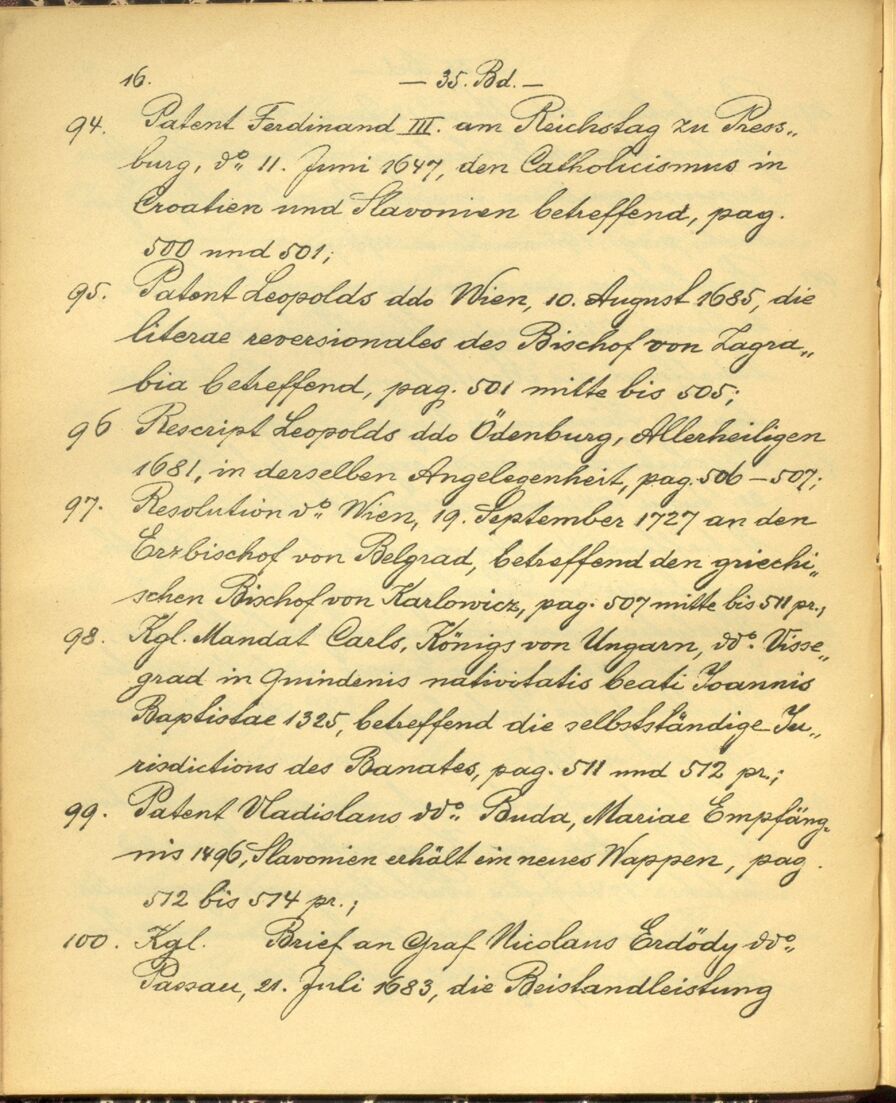 16. — 35. Bd. —
94. Patent Ferdinand III. am Reichstag zu Press„
burg, do„ 11. Juni 1647, den Catholicismus in
Croatien und Slavonien betreffend, pag.
500 und 501;
95. Patent Leopolds ddo Wien, 10. August 1685, die
literae reversionales des Bischof von Zagra„
bia betreffend, pag. 501 mitte bis 505;
96 Rescript Leopolds ddo Ödenburg, Allerheiligen
1681, in derselben Angelegenheit, pag. 506 – 507;
97. Resolution do„ Wien, 19. September 1727 an den
Erzbischof von Belgrad, betreffend den griechi„
schen Bischof von Karlowicz, pag. 507 mitte bis 511 pr.;
98. Kgl. Mandat Carls, Königs von Ungarn, ddo. Visse„
grad in Quindenis nativitatis beati Joannis
Baptistae 1325, betreffend die selbstständige Ju„
risdictions des Banates, pag. 511 und 512 pr.;
99. Patent Vladislaus ddo„ Buda, Mariae Empfäng„
nis 1496, Slavonien erhält ein neues Wappen, pag.
512 bis 514 pr.;
100. Kgl. Brief an Graf Nicolaus Erdödy ddo„
Passau, 21. Juli 1683, die Beistandleistung